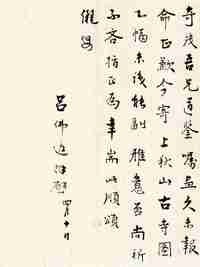 奇茂吾兄道鉴嘱画久未报
命正歉今寄上秋山古寺图
乙幅未识能副雅意否尚祈
不吝指正为幸耑此顺颂
俪安
吕佛庭拜启
四月十日